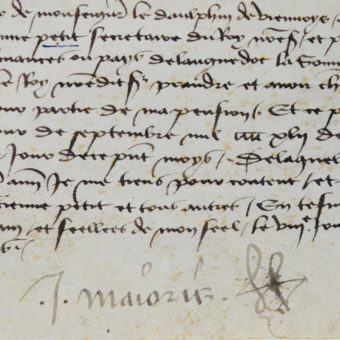 de monseignr le daulphin de viennoys
petit secretaire du Roy nre sr et
finances ou pays de languedoc la somme
Roy nredit sr prandre et avoir
partie de ma pension. Et ce
jour de septembre mil iiiic xlii
jour de ce pnt moys. De laquelle
je me tiens pour content et
petit et tous autres. En tesm
et scellees de mon seel, le viiie jour
J. Maioris